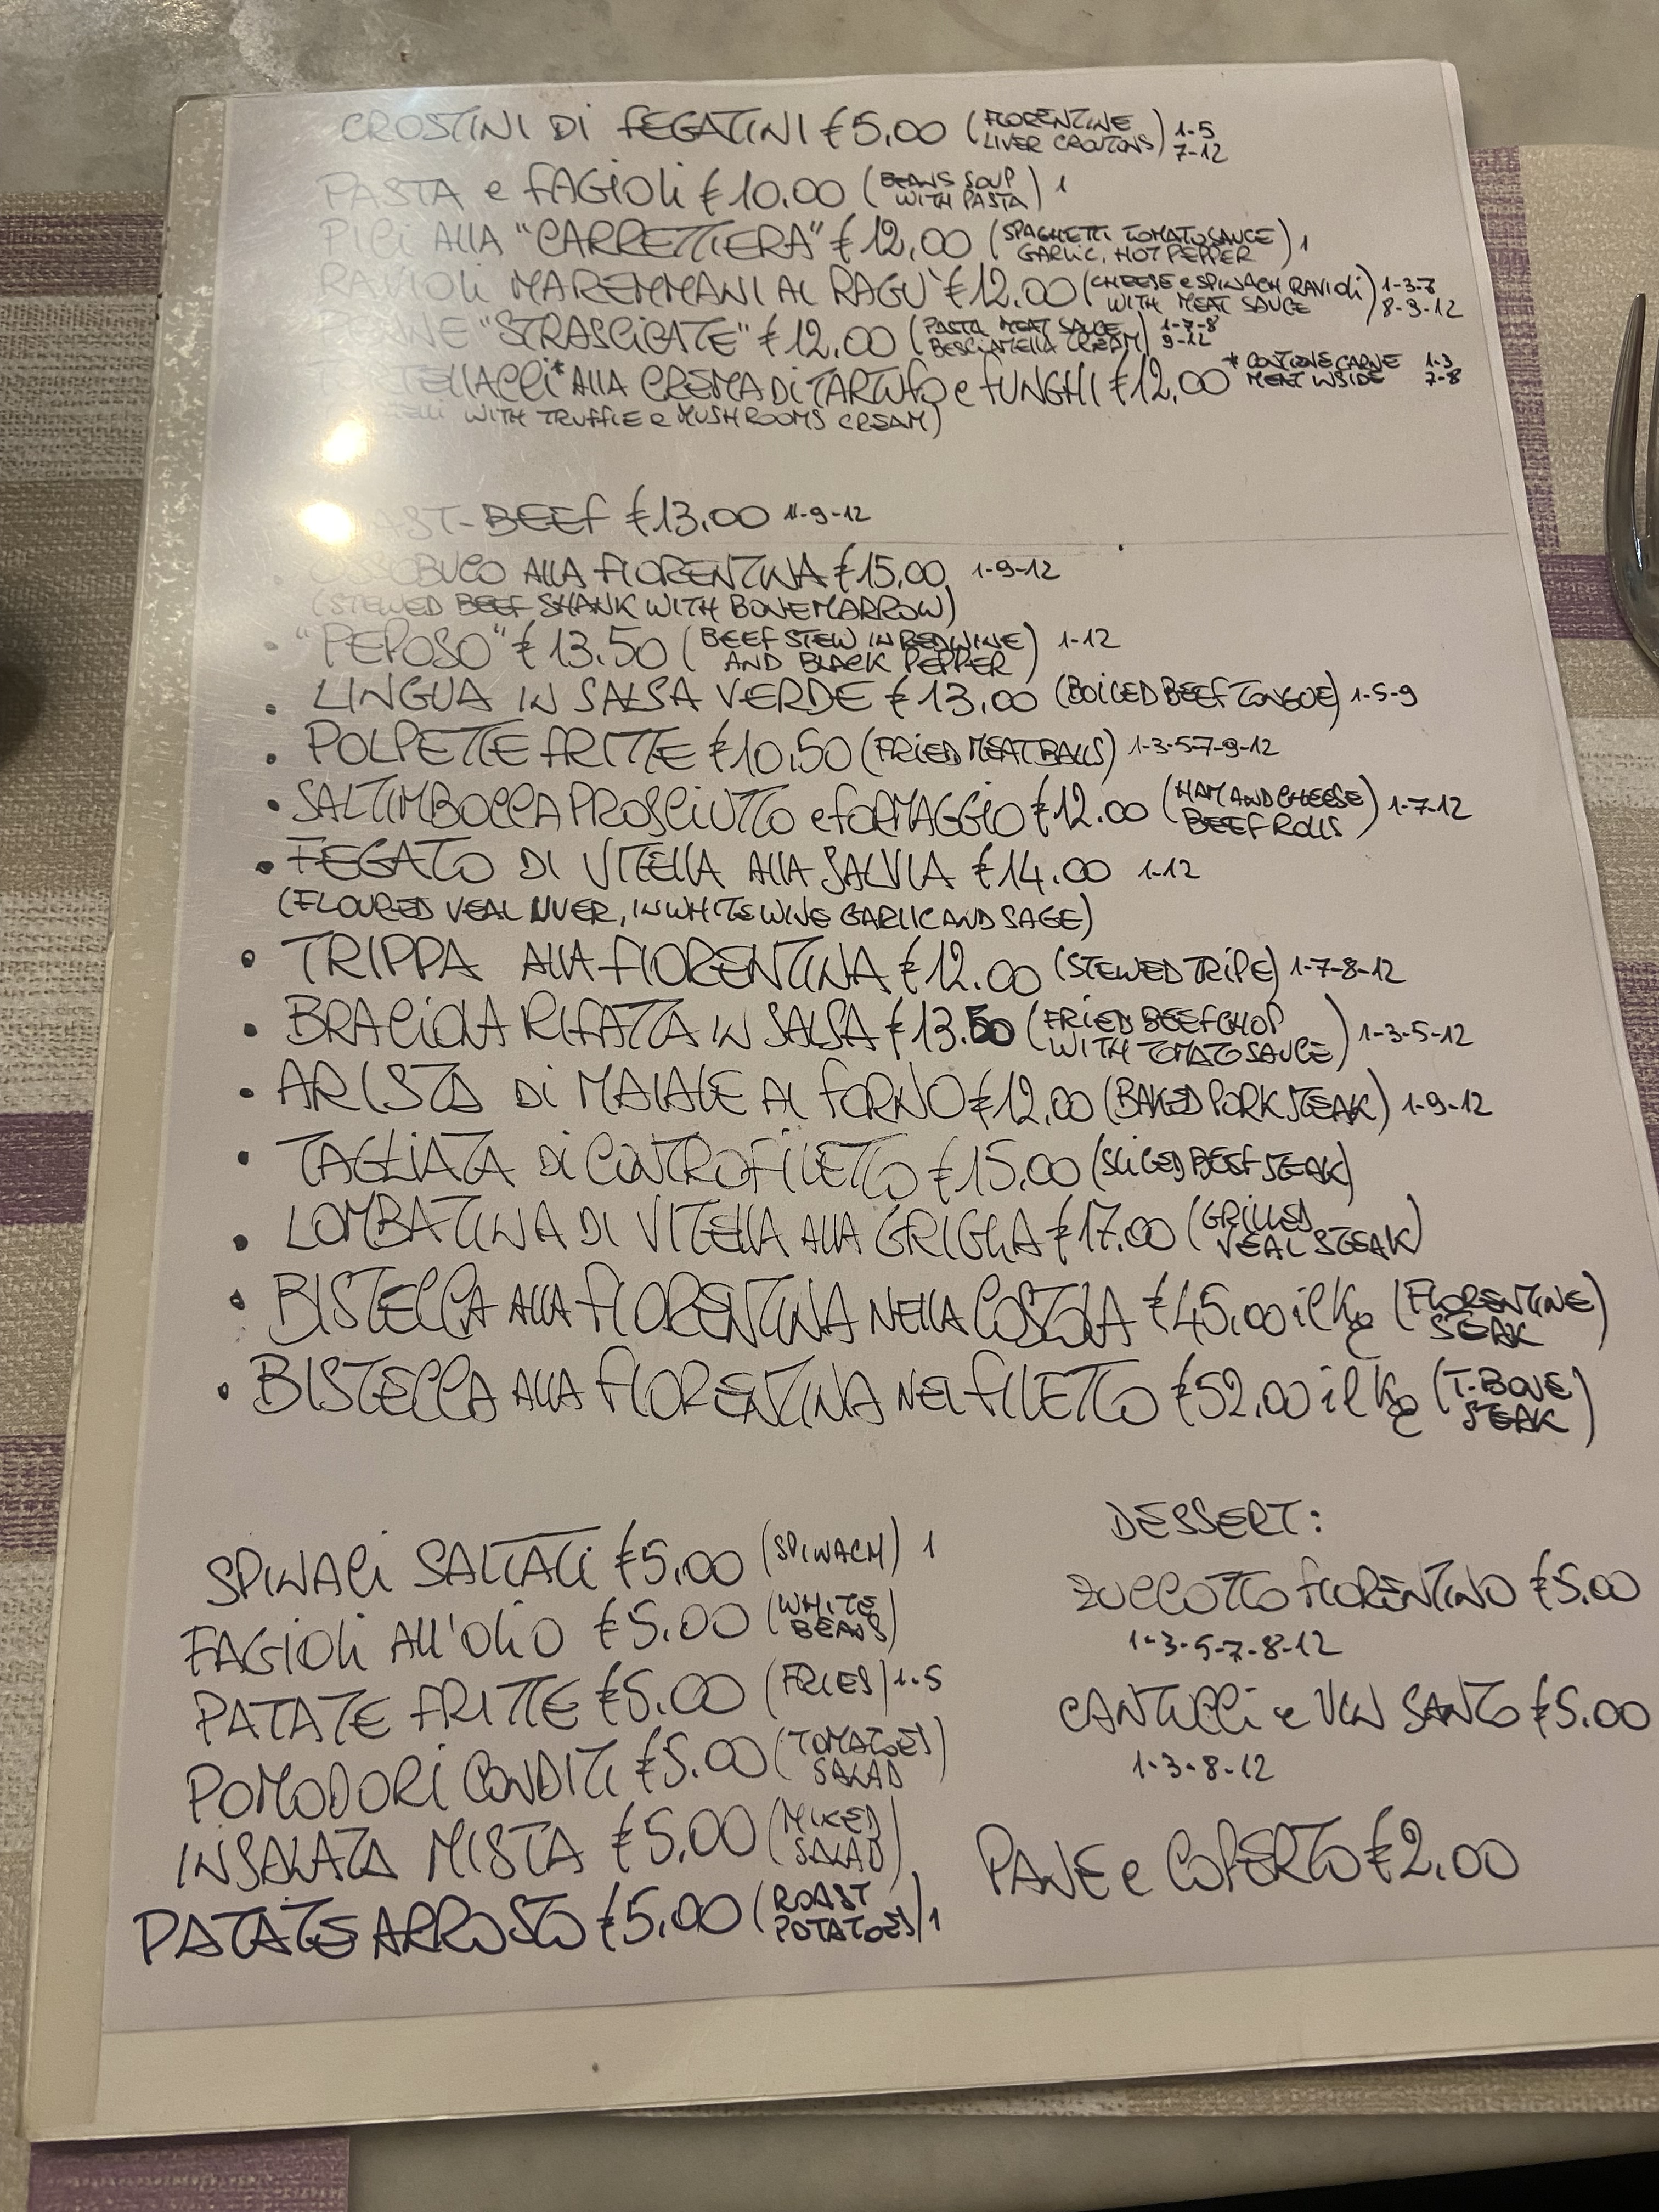 CROSTINI DI FEGATINI €5,00 (FLORENTINE LIVER CROUTONS) 1-5 7-12
PASTA e FAGIOLI €10.00 (BEANS SOUP WITH PASTA) 1
PICI ALLA "CARRETTIERA" €12,00 (SPAGHETTI TOMATO SAUCE GARLIC, HOT PEPPER) 1
RAVIOLI MAREMMANI AL RAGU' €12.00 (CHEESE e SPINACH RAVIOLI WITH MEAT SAUCE) 8-9-12
"STRASCICATE" €12,00 (PASTA MEAT SAUCE BESCIAMELLA CREAM) 1-7-8 9-12
ALLA CREMA DI TARTUFO e FUNGHI €12,00 * CONTIENE CARNE MEAT INSIDE 1-3 7-8
WITH TRUFFLE e MUSHROOMS CREAM)
BEEF €13.00 11-9-12
OSSOBUCO ALLA FIORENTINA €15,00 1-9-12
(STEWED BEEF SHANK WITH BONE MARROW)
• "PEPOSO" €13.50 (BEEF STEW IN RED WINE AND BLACK PEPPER) 1-12
• LINGUA IN SALSA VERDE €13,00 (BOILED BEEF TONGUE) 1-5-9
• POLPETTE FRITTE €10,50 (FRIED MEATBALLS) 1-3-5-7-9-12
• SALTIMBOCCA PROSCIUTTO e FORMAGGIO €12.00 (HAM AND CHEESE BEEF ROLLS) 1-7-12
• FEGATO DI VITELLA ALLA SALVIA €14.00 1-12
(FLOURED VEAL LIVER, IN WHITE WINE GARLIC AND SAGE)
• TRIPPA ALLA FIORENTINA €12.00 (STEWED TRIPE) 1-7-8-12
• BRACIOLA RIFATTA IN SALSA €13.50 (FRIED BEEF CHOP WITH TOMATO SAUCE) 1-3-5-12
• ARISTA DI MAIALE AL FORNO €12,00 (BAKED PORK STEAK) 1-9-12
• TAGLIATA DI CONTROFILETTO €15,00 (SLICED BEEF STEAK)
• LOMBATINA DI VITELLA ALLA GRIGLIA €17.00 (GRILLED VEAL STEAK)
• BISTECCA ALLA FIORENTINA NELLA COSTOLA €45,00 il Kg (FLORENTINE STEAK)
• BISTECCA ALLA FIORENTINA NEL FILETTO €52,00 il Kg (T-BONE STEAK)
SPINACI SALTATI €5,00 (SPINACH) 1
FAGIOLI ALL'OLIO €5,00 (WHITE BEANS)
PATATE FRITTE €5,00 (FRIES) 1-5
POMODORI CONDITI €5.00 (TOMATOES SALAD)
INSALATA MISTA €5,00 (MIXED SALAD)
PATATE ARROSTO €5,00 (ROAST POTATOES) 1
DESSERT:
ZUCCOTTO FIORENTINO €5.00
1-3-5-7-8-12
CANTUCCI e VIN SANTO €5.00
1-3-8-12
PANE e COPERTO €2.00